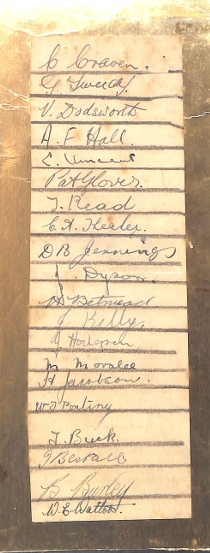 C Craven.
G Tweedy.
V. Dodsworth
A. F Hall.
E. Vincent
Pat Glover.
T. Read
E. A. Keeler.
D B Jennings
J Dyson.
Betmead
J Kelly,
J Hodgson
M Moralee
H Jacobson.
W J Ponting
T Buck
J Bestall
B Burley
W. E Wattam.